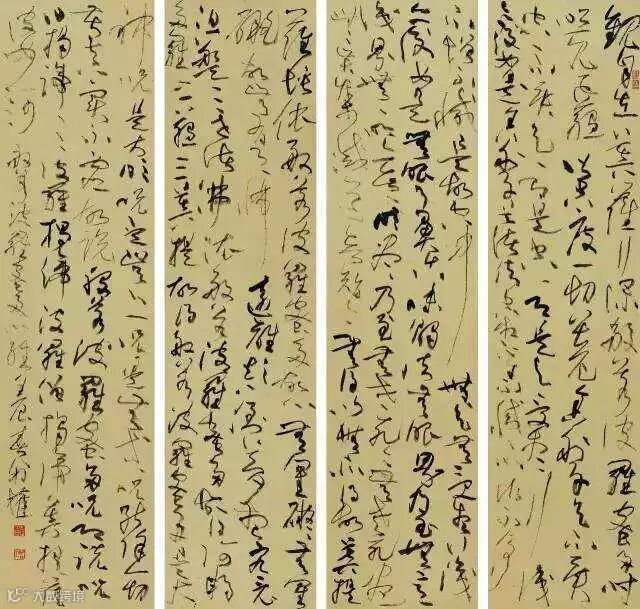 觀自在菩薩行深般若波羅蜜多時
照見五蘊皆空度一切苦厄舍利子色不異
空空不異色色即是空空即是色受想行識
亦復如是舍利子是諸法空相不生不滅不垢不淨
不增不減是故空中無色無受想行識
無眼耳鼻舌身意無色聲香味觸法無眼界乃至無意
識界無無明亦無無明盡乃至無老死亦無老死盡
無苦集滅道無智亦無得以無所得故菩提
薩埵依般若波羅蜜多故心無罣礙無罣
礙故無有恐怖遠離顛倒夢想究竟
涅槃三世諸佛依般若波羅蜜多故得阿耨
多羅三藐三菩提故知般若波羅蜜多是大
神咒是大明咒是無上咒是無等等咒能除一切
苦真實不虛故說般若波羅蜜多咒即說咒
曰揭諦揭諦波羅揭諦波羅僧揭諦菩提薩
婆訶 般若波羅蜜多心經
大数跨境